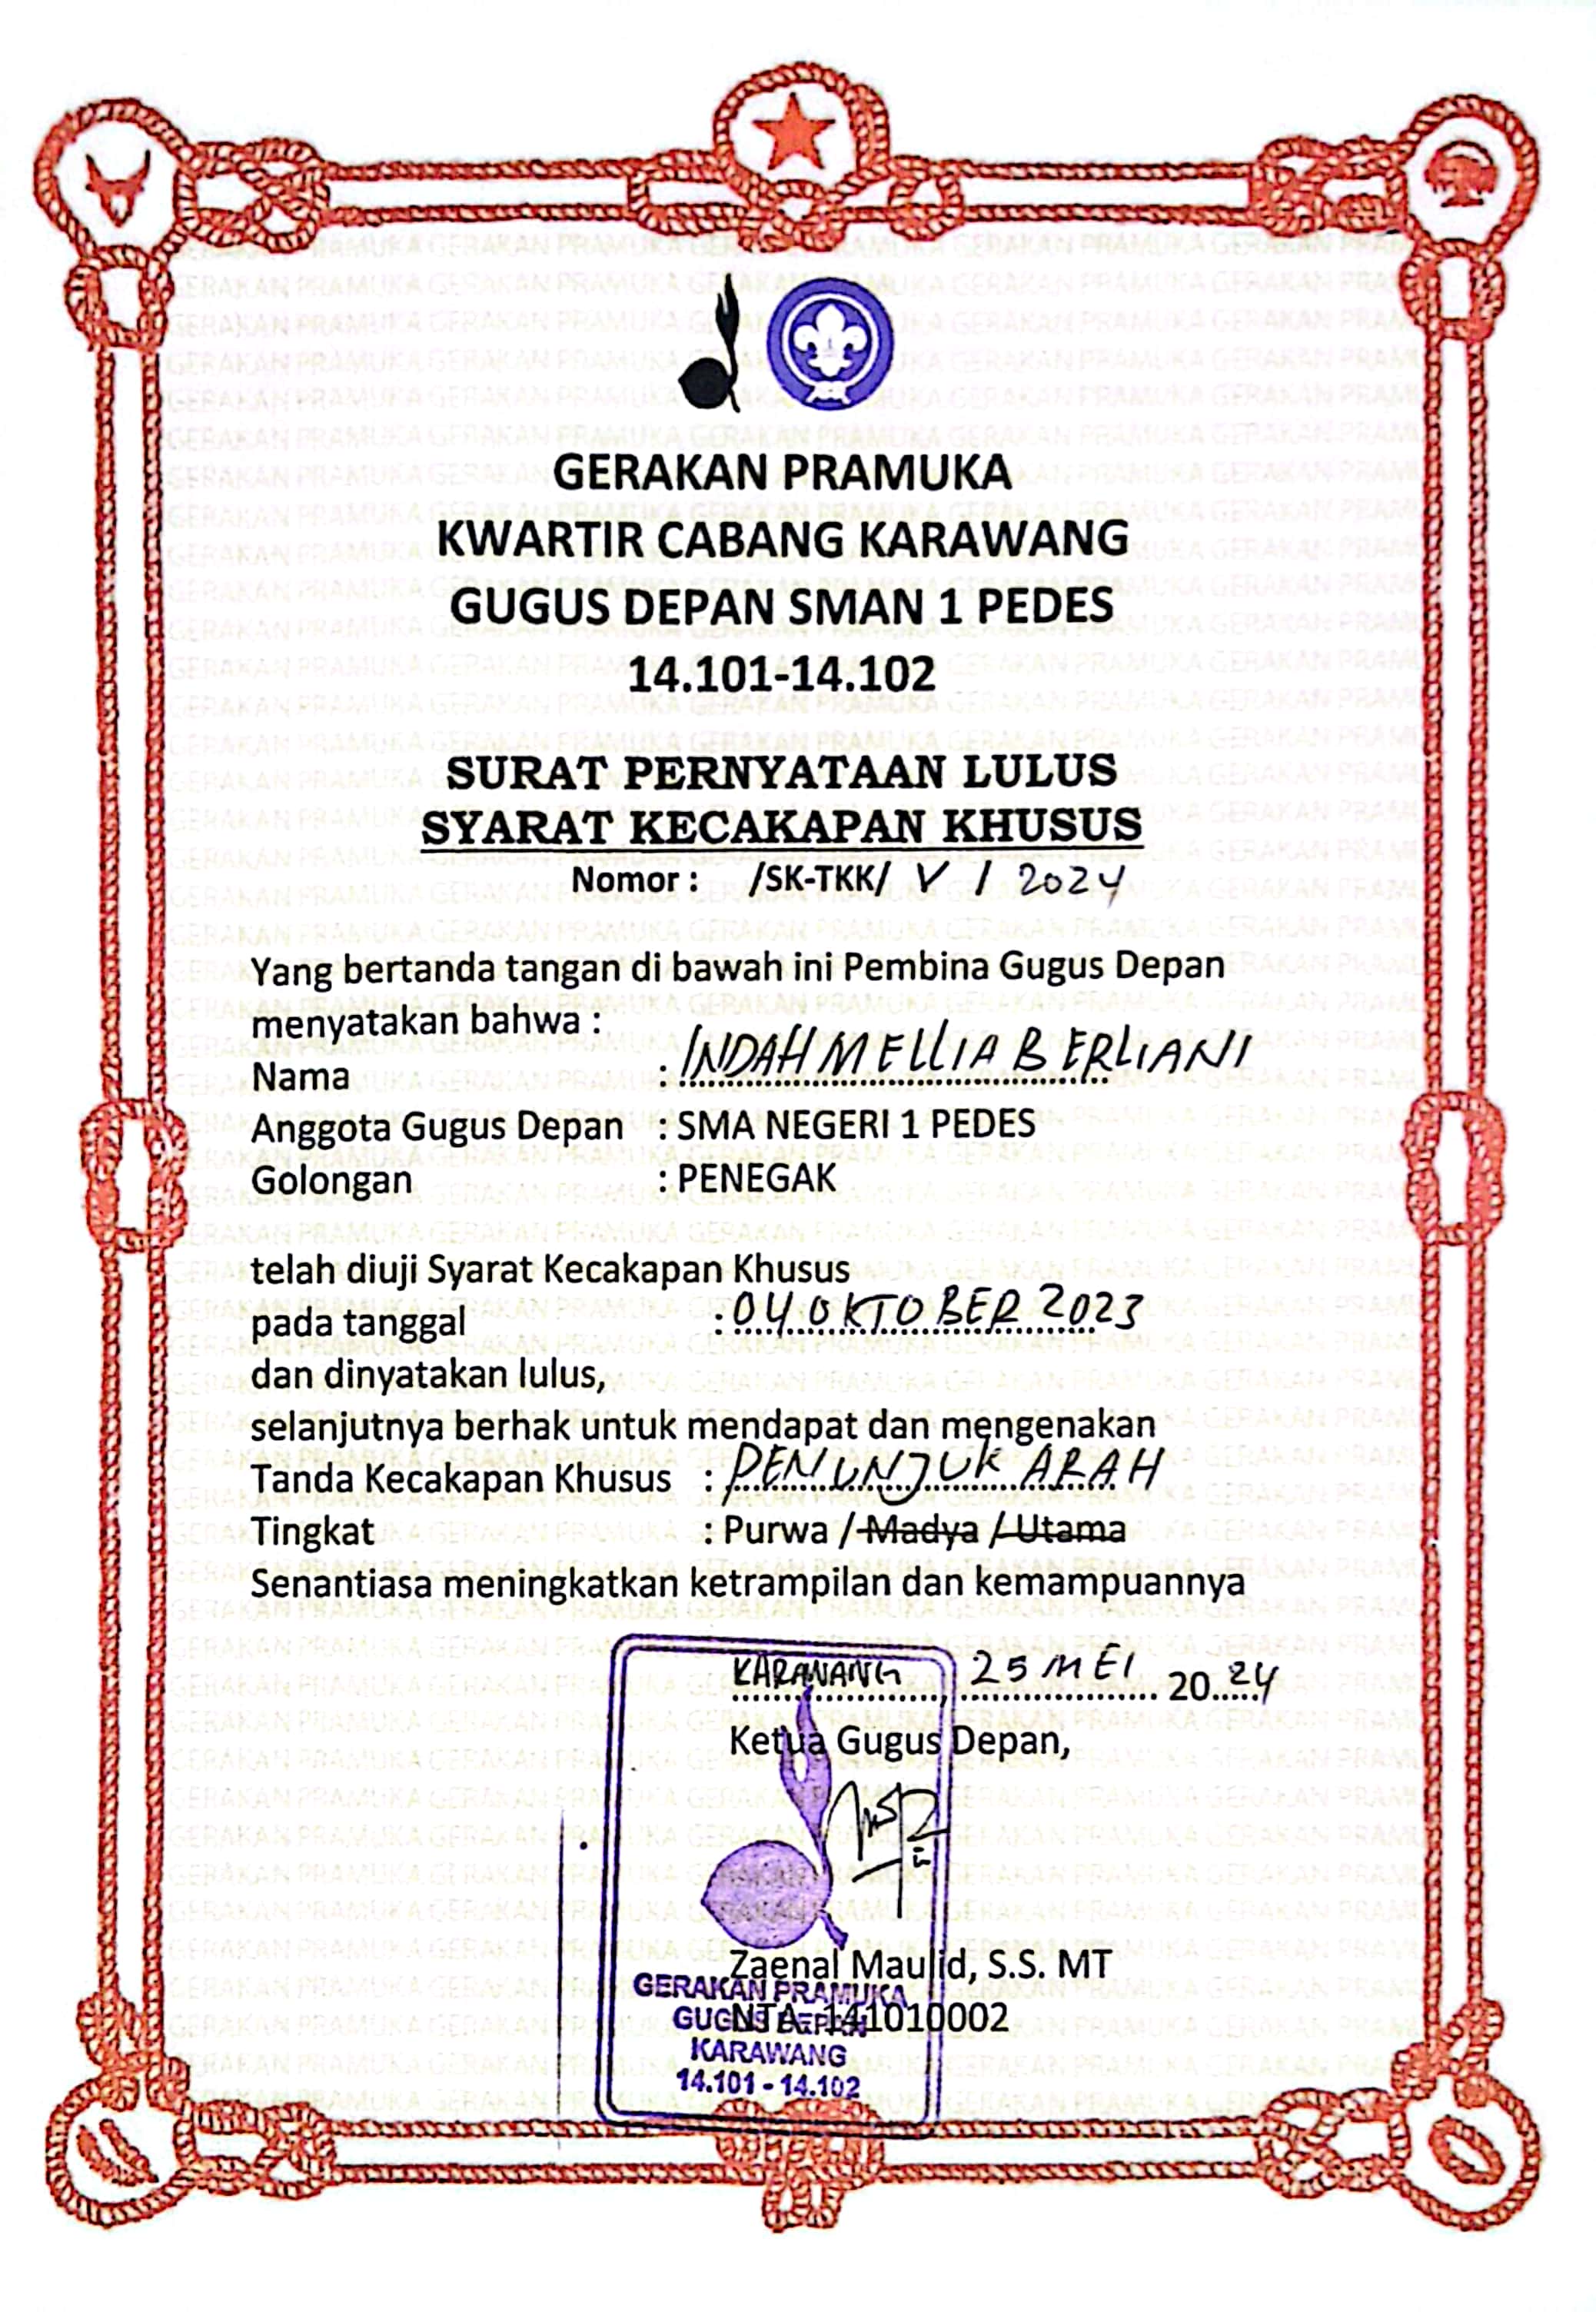 GERAKAN PRAMUKA
KWARTIR CABANG KARAWANG
GUGUS DEPAN SMAN 1 PEDES
14.101-14.102
SURAT PERNYATAAN LULUS
SYARAT KECAKAPAN KHUSUS
Nomor : /SK-TKK/ V / 2024
Yang bertanda tangan di bawah ini Pembina Gugus Depan
menyatakan bahwa :
Nama : INDAH MELLIA BERLIANI
Anggota Gugus Depan : SMA NEGERI 1 PEDES
Golongan : PENEGAK
telah diuji Syarat Kecakapan Khusus
pada tanggal : 04 OKTOBER 2023
dan dinyatakan lulus,
selanjutnya berhak untuk mendapat dan mengenakan
Tanda Kecakapan Khusus : PENUNJUK ARAH
Tingkat : Purwa / Madya / Utama
Senantiasa meningkatkan ketrampilan dan kemampuannya
KARAWANG, 25 MEI 2024
Ketua Gugus Depan,
Zaenal Maulid, S.S. MT
NTA. 141010002
GERAKAN PRAMUKA
GUGUS DEPAN
KARAWANG
14.101 - 14.102